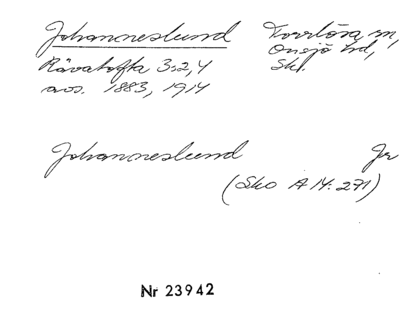 Johanneslund Torrlösa sn,
Rävatofta 3:2,4 Onsjö hd,
avs. 1883, 1914 Skl.
Johanneslund Jr
(Sko A 14: 271)
Nr 23942